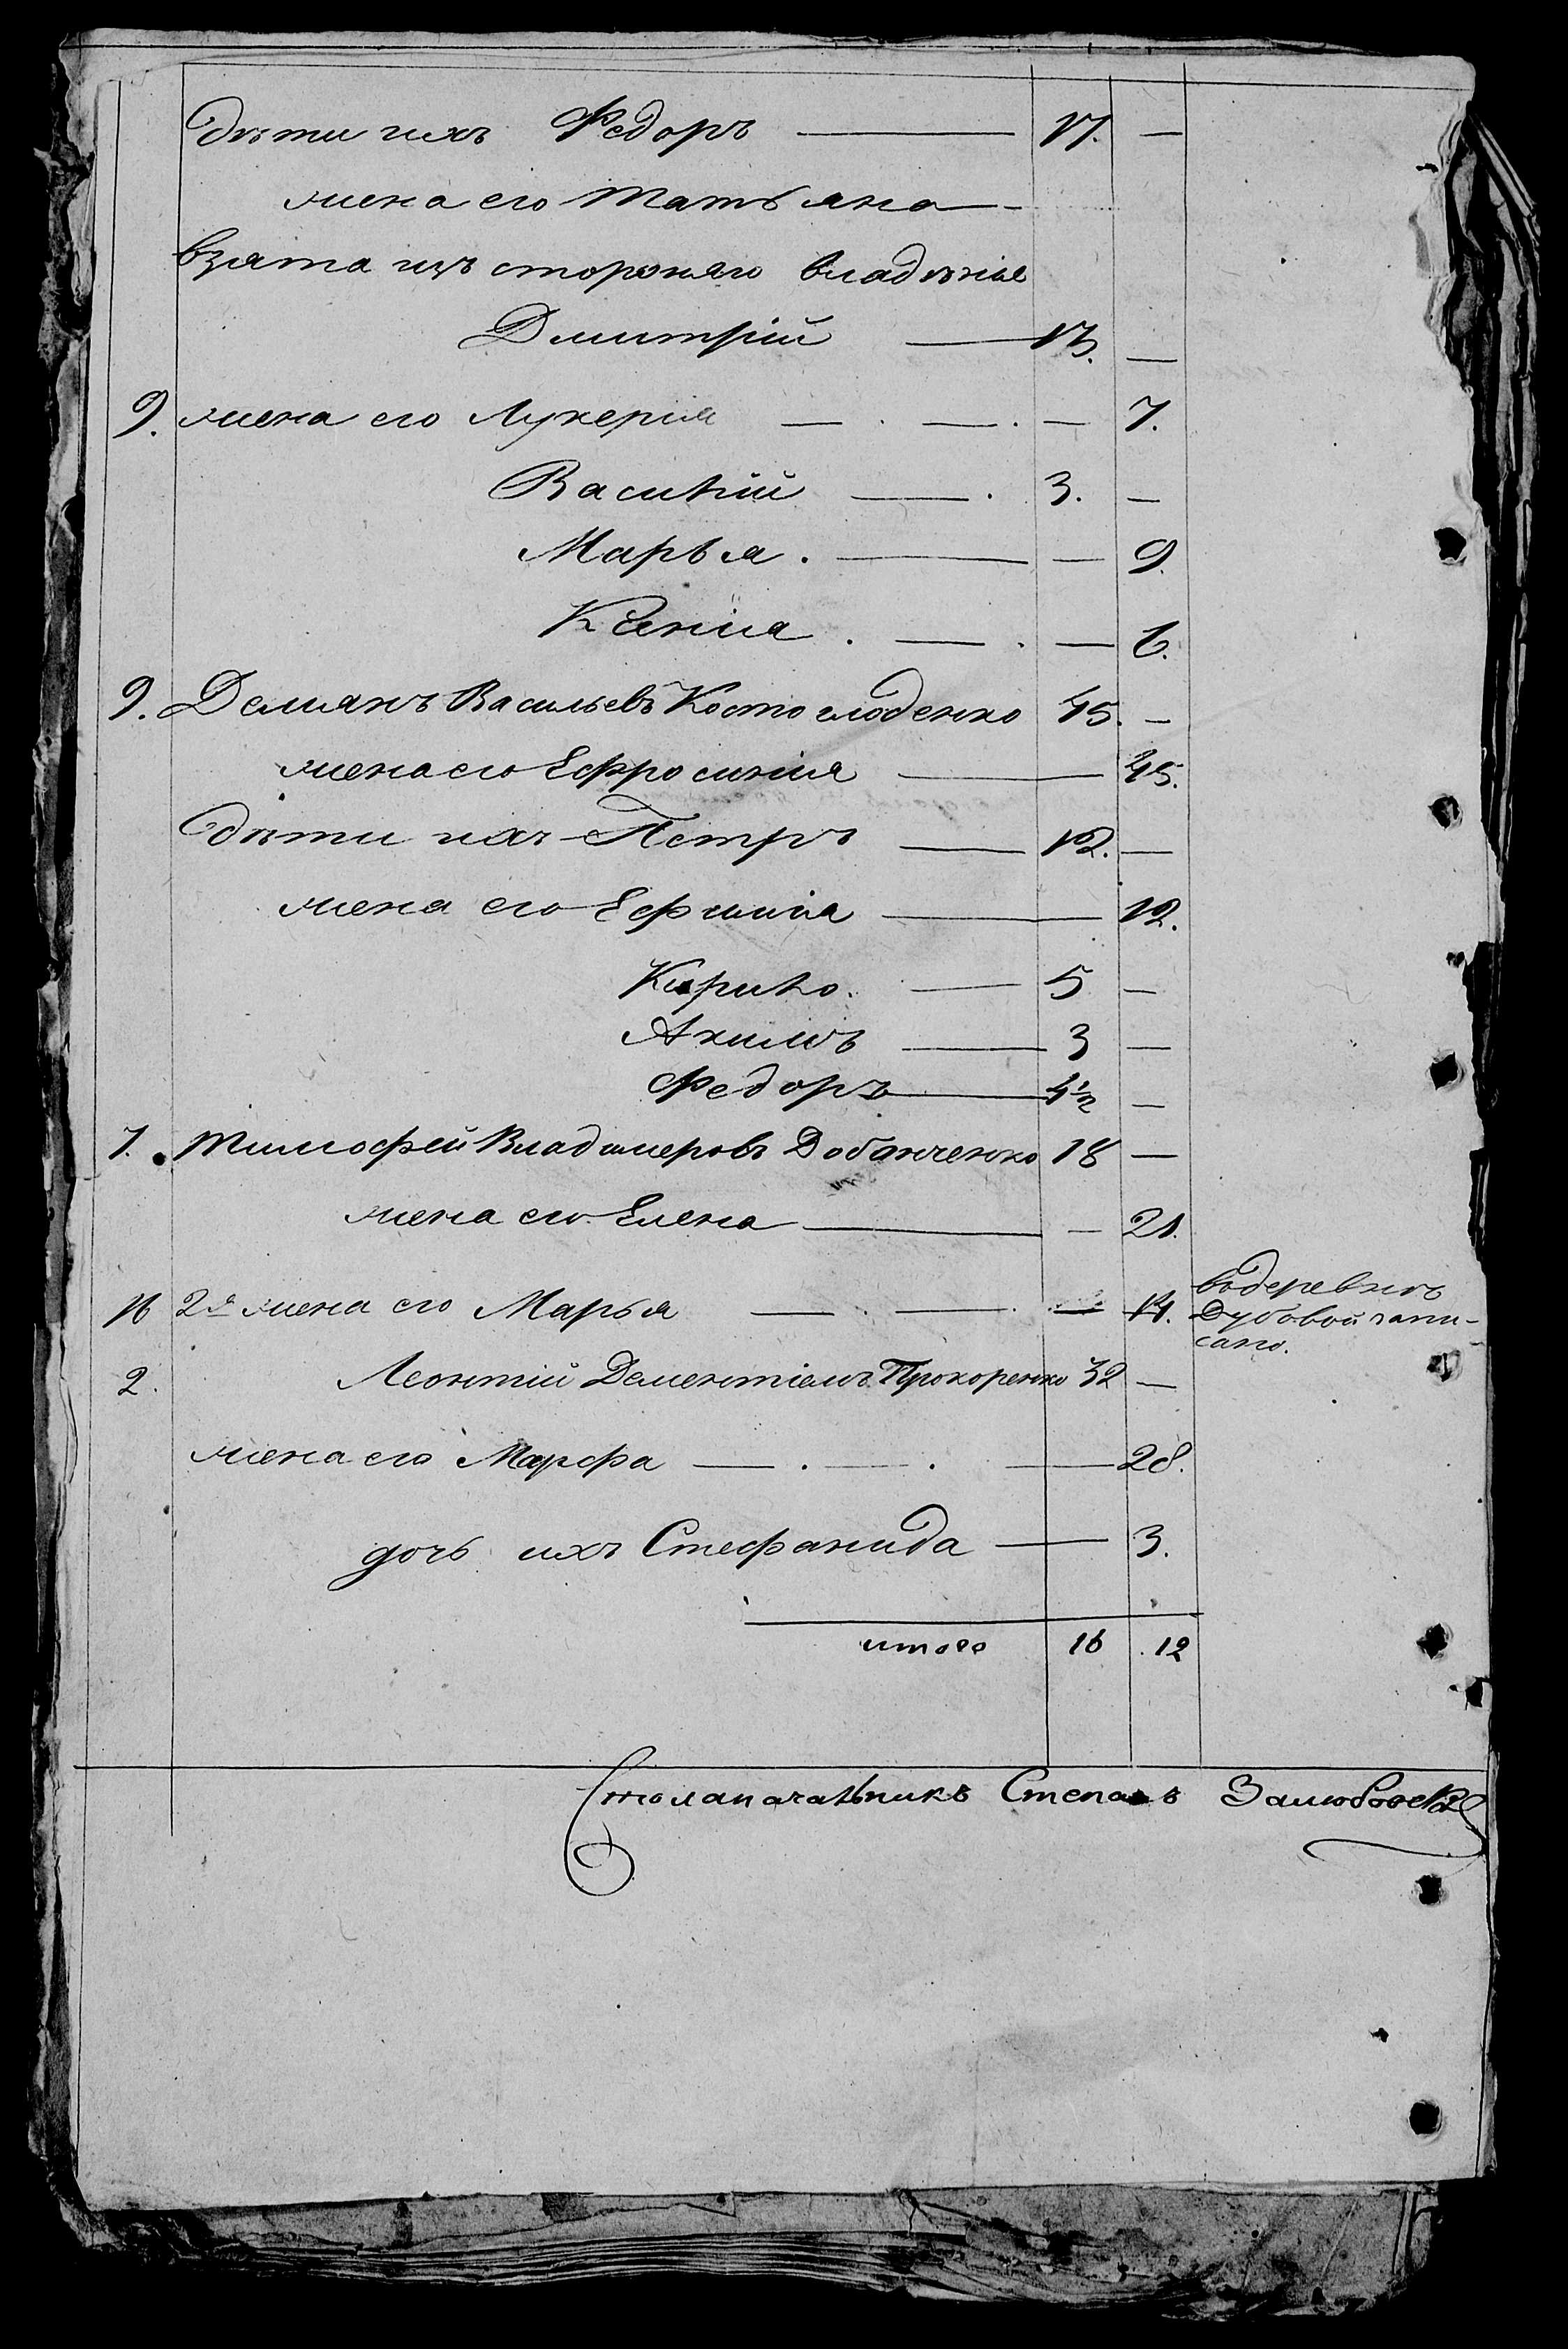 дѣти ихъ Федоръ — 17. —
жена его Татьяна —
взята изъ стороняго владѣнія
Дмитрій — 13. —
9. жена его Лукерія — . — . — 7.
Василій — . 3. —
Марья . — — 9.
Ксенія . — . — 6.
9. Демянъ Васильевъ Костоглоденко 45. —
жена его Ефросинія — 45.
дѣти ихъ Петръ — 12. —
жена его Ефимія — 12.
Кирило. — 5 —
Акимъ — 3 —
Федоръ — 1/2 —
7. Тимофей Владимеровъ Добанченко 18 —
жена его Елена — — 21.
16 2я жена его Марья — . — . — 14. въ деревнѣ
Дубовой запи-
сано.
2. Леонтій Дементіевъ Прохоренко 32 —
жена его Марфа — . — . — 28.
дочь ихъ Стефанида — 3.
итого 16 . 12
Столаначальникъ Степанъ